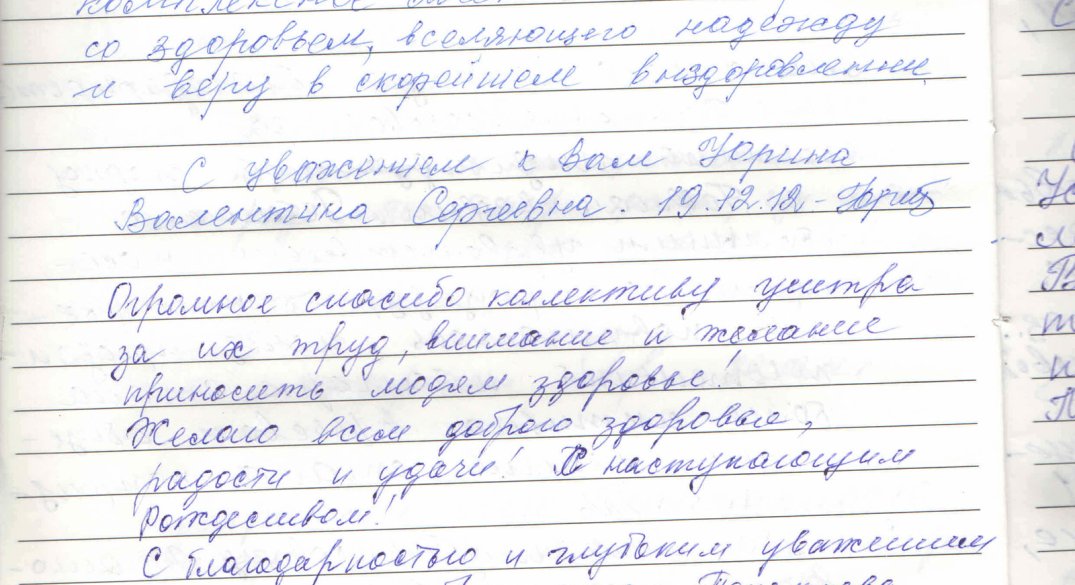 комплексное
со здоровьем, вселяющего надежду
и веру в скорейшем выздоровлении.
С уважением к Вам Угрина
Валентина Сергеевна. 19.12.12 -
Огромное спасибо коллективу центра
за их труд, внимание и желание
приносить людям здоровье!
Желаю всем доброго здоровья,
радости и удачи! С наступающим
Рождеством!
С благодарностью и глубоким уважением